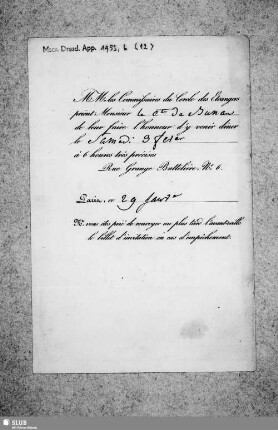 Mscr. Dresd. App. 1952, 6 (12)
M.M. les Commissaires du Cercle des Etrangers
prient Monsieur le Cte de Bunau
de leur faire l'honneur d'y venir dîner
le Samedi 3 fevr
à 6 heures très précises
Rue Grange Batteliere, N° 6.
Paris, ce 29 Janvr
vous êtes prié de renvoyer au plus tard l'avantveille
le billet d'invitation en cas d'empêchement.
SLUB